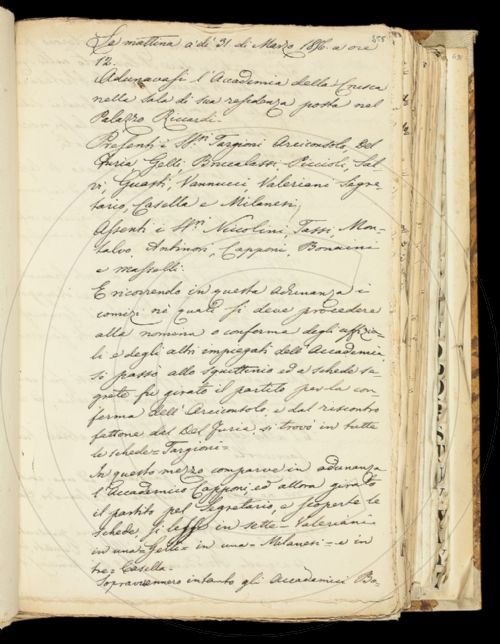 La mattina a dì 31 di Marzo 1856 a ore
12.
Adunavasi l'Accademia della Crusca
nella sala di sua residenza posta nel
Palazzo Riccardi.
Presenti i SS.ri Targioni Arciconsolo, Del
Furia Gelli Brucalassi, Puccioti, Sal-
vi, Guasti, Vannucci, Valeriani Segre-
tario, Casella e Milanesi;
Assenti i SS.ri Niccolini, Tassi, Mon-
talvo, Antinori, Capponi, Bonaini
e Masselli.
E ricorrendo in questa adunanza i
comizi nè quali si deve procedere
alla nomina o conferma degli uffizia-
li e degli altri impiegati dell'Accademia
si passò allo squittinio ed a schede se-
grete fu girato il partito per la con-
ferma dell'Arciconsolo, e dal riscontro
fattone dal Del Furia si trovò in tutte
le schede = Targioni =
In questo mezzo comparve in adunanza
l'Accademico Capponi, ed allora girato
il partito pel Segretario, e scoperte le
schede, si lesse in sette = Valeriani =
in una = Gelli = in una = Milanesi = e in
tre = Casella =
Sopravvennero intanto gli Accademici Bo-